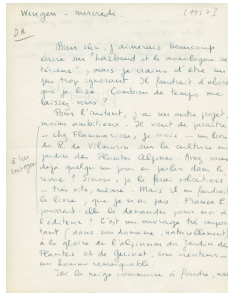 Wengen - mercredi.
[1957]
DA
Bien sûr, j'aimerais beaucoup
écrire sur "Larbaud et le monologue in
térieur", mais je crains d'être un
peu trop ignorant. Il faudrait d'abord
que je lise. Combien de temps me
laissez-vous ?
Pour l'instant, j'ai un autre projet,
moins ambitieux. Il vient de paraître
- chez Flammarion, je crois - un livre
de R. de Vilmorin sur la culture au
jardin des Plantes Alpines. Avez-vous
déjà quelqu'un pour en parler dans la
revue ? Sinon, je le ferai volontiers
- très vite, même. Mais il me faudrait
le livre, que je n'ai pas. France
pourrait-elle le demander pour moi à
l'éditeur ? C'est un ouvrage très
dans son domaine, naturellement
à la gloire de l'alpinum du Jardin des
Plantes et de
un homme remarquable.
Ici la neige commence à fondre, mais